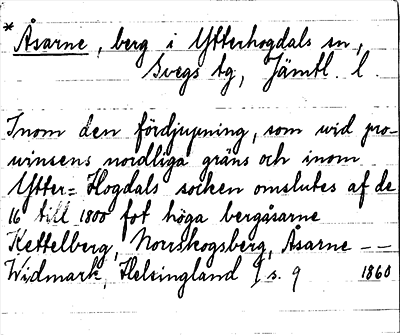 * Åsarne, berg i Ytterhogdals sn,
Svegs tg, Jämtl. l.
Inom den fördjupning, som wid pro-
winsens nordliga gräns och inom
Ytter=Hogdals socken omslutes af de
16 till 1800 fot höga bergåsarne
Kettelberg, Norrskogsberg, Åsarne --
Widmark, Helsingland I s. 9 1860